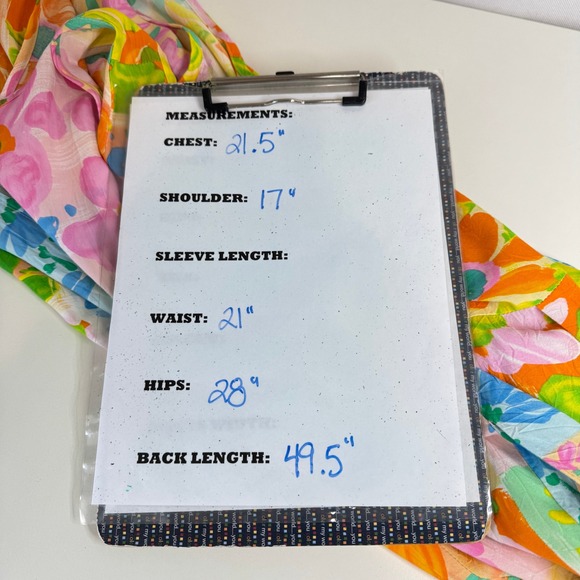 MEASUREMENTS:
CHEST: 21.5"
SHOULDER: 17"
SLEEVE LENGTH:
WAIST: 21"
HIPS: 28"
BACK LENGTH: 49.5"